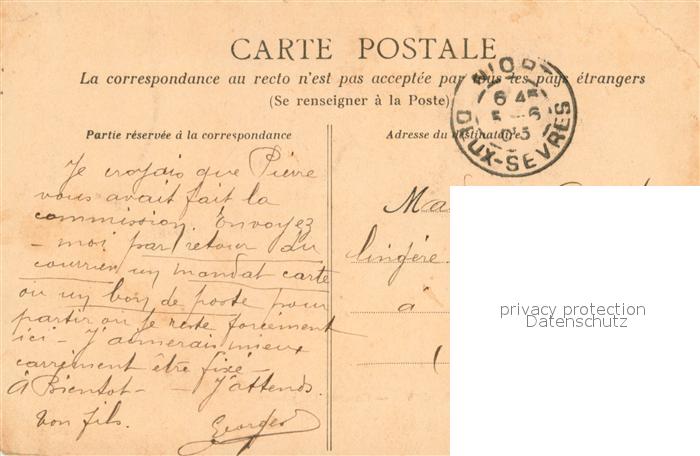 CARTE POSTALE
La correspondance au recto n'est pas acceptée par tous les pays étrangers
(Se renseigner à la Poste)
NIORT
6 45
5 - 6
05
DEUX-SÈVRES
Partie réservée à la correspondance
Adresse du destinataire
Je croyais que Pierre
vous avait fait la
commission. Envoyez
- moi par retour du
courrier un mandat carte
ou un bon de poste pour
partir ou je reste forcément
ici - J'aimerais mieux
carrément être fixé -
À Bientot - - J'attends.
ton fils.
Georges
Ma
lingère
à
(
privacy protection
Datenschutz